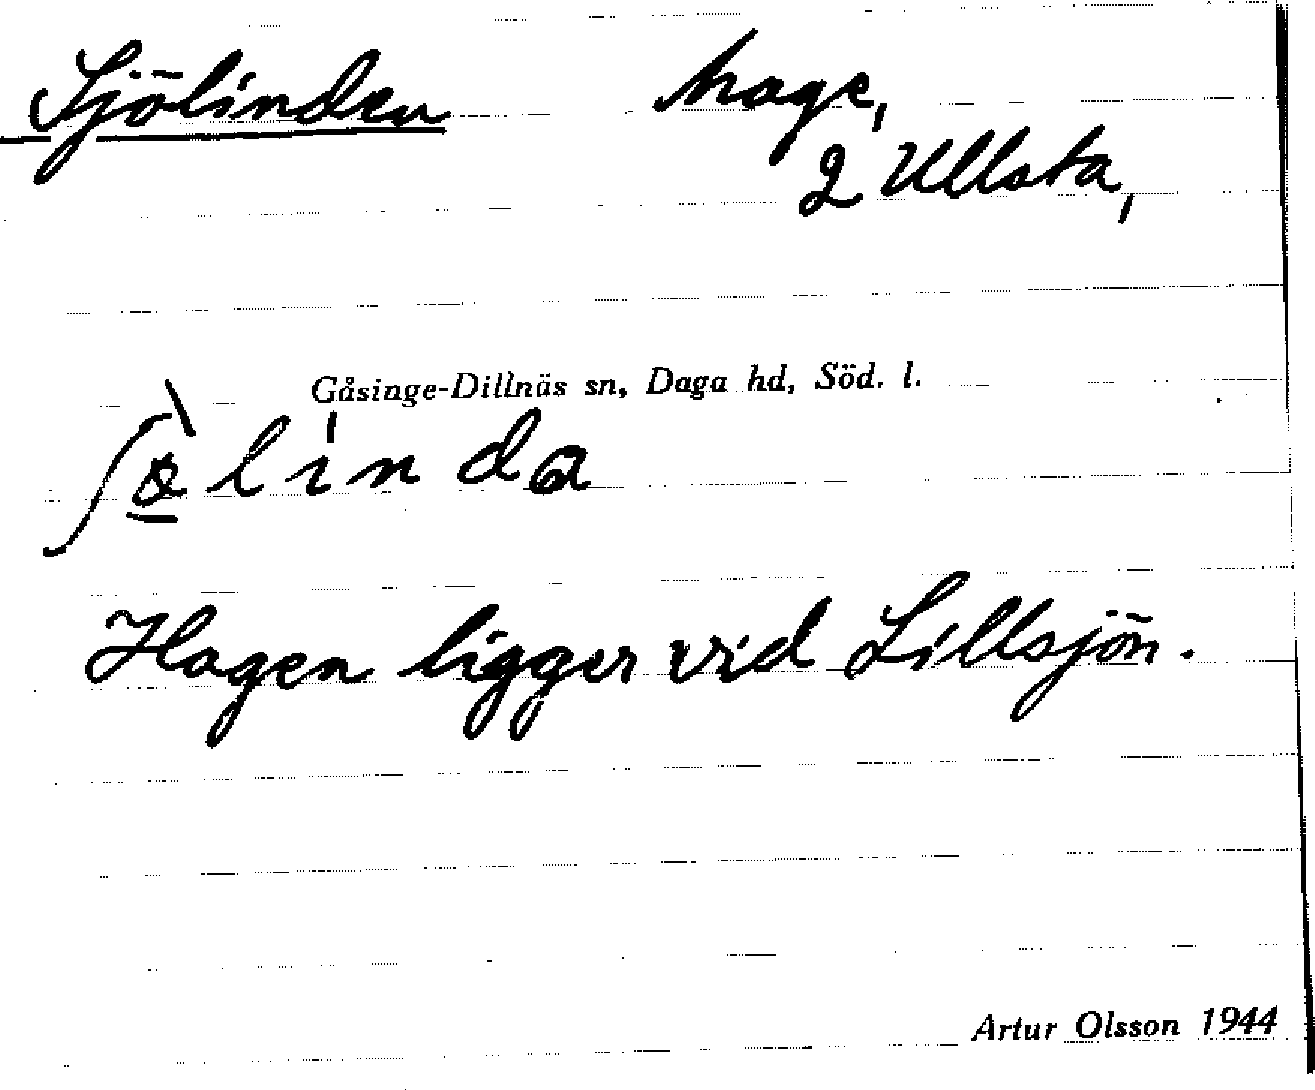 Sjölinden hage,
2 Ullsta,
Gåsinge-Dillnäs sn, Daga hd, Söd. l.
Hagen ligger vid Lillsjön.
Artur Olsson 1944